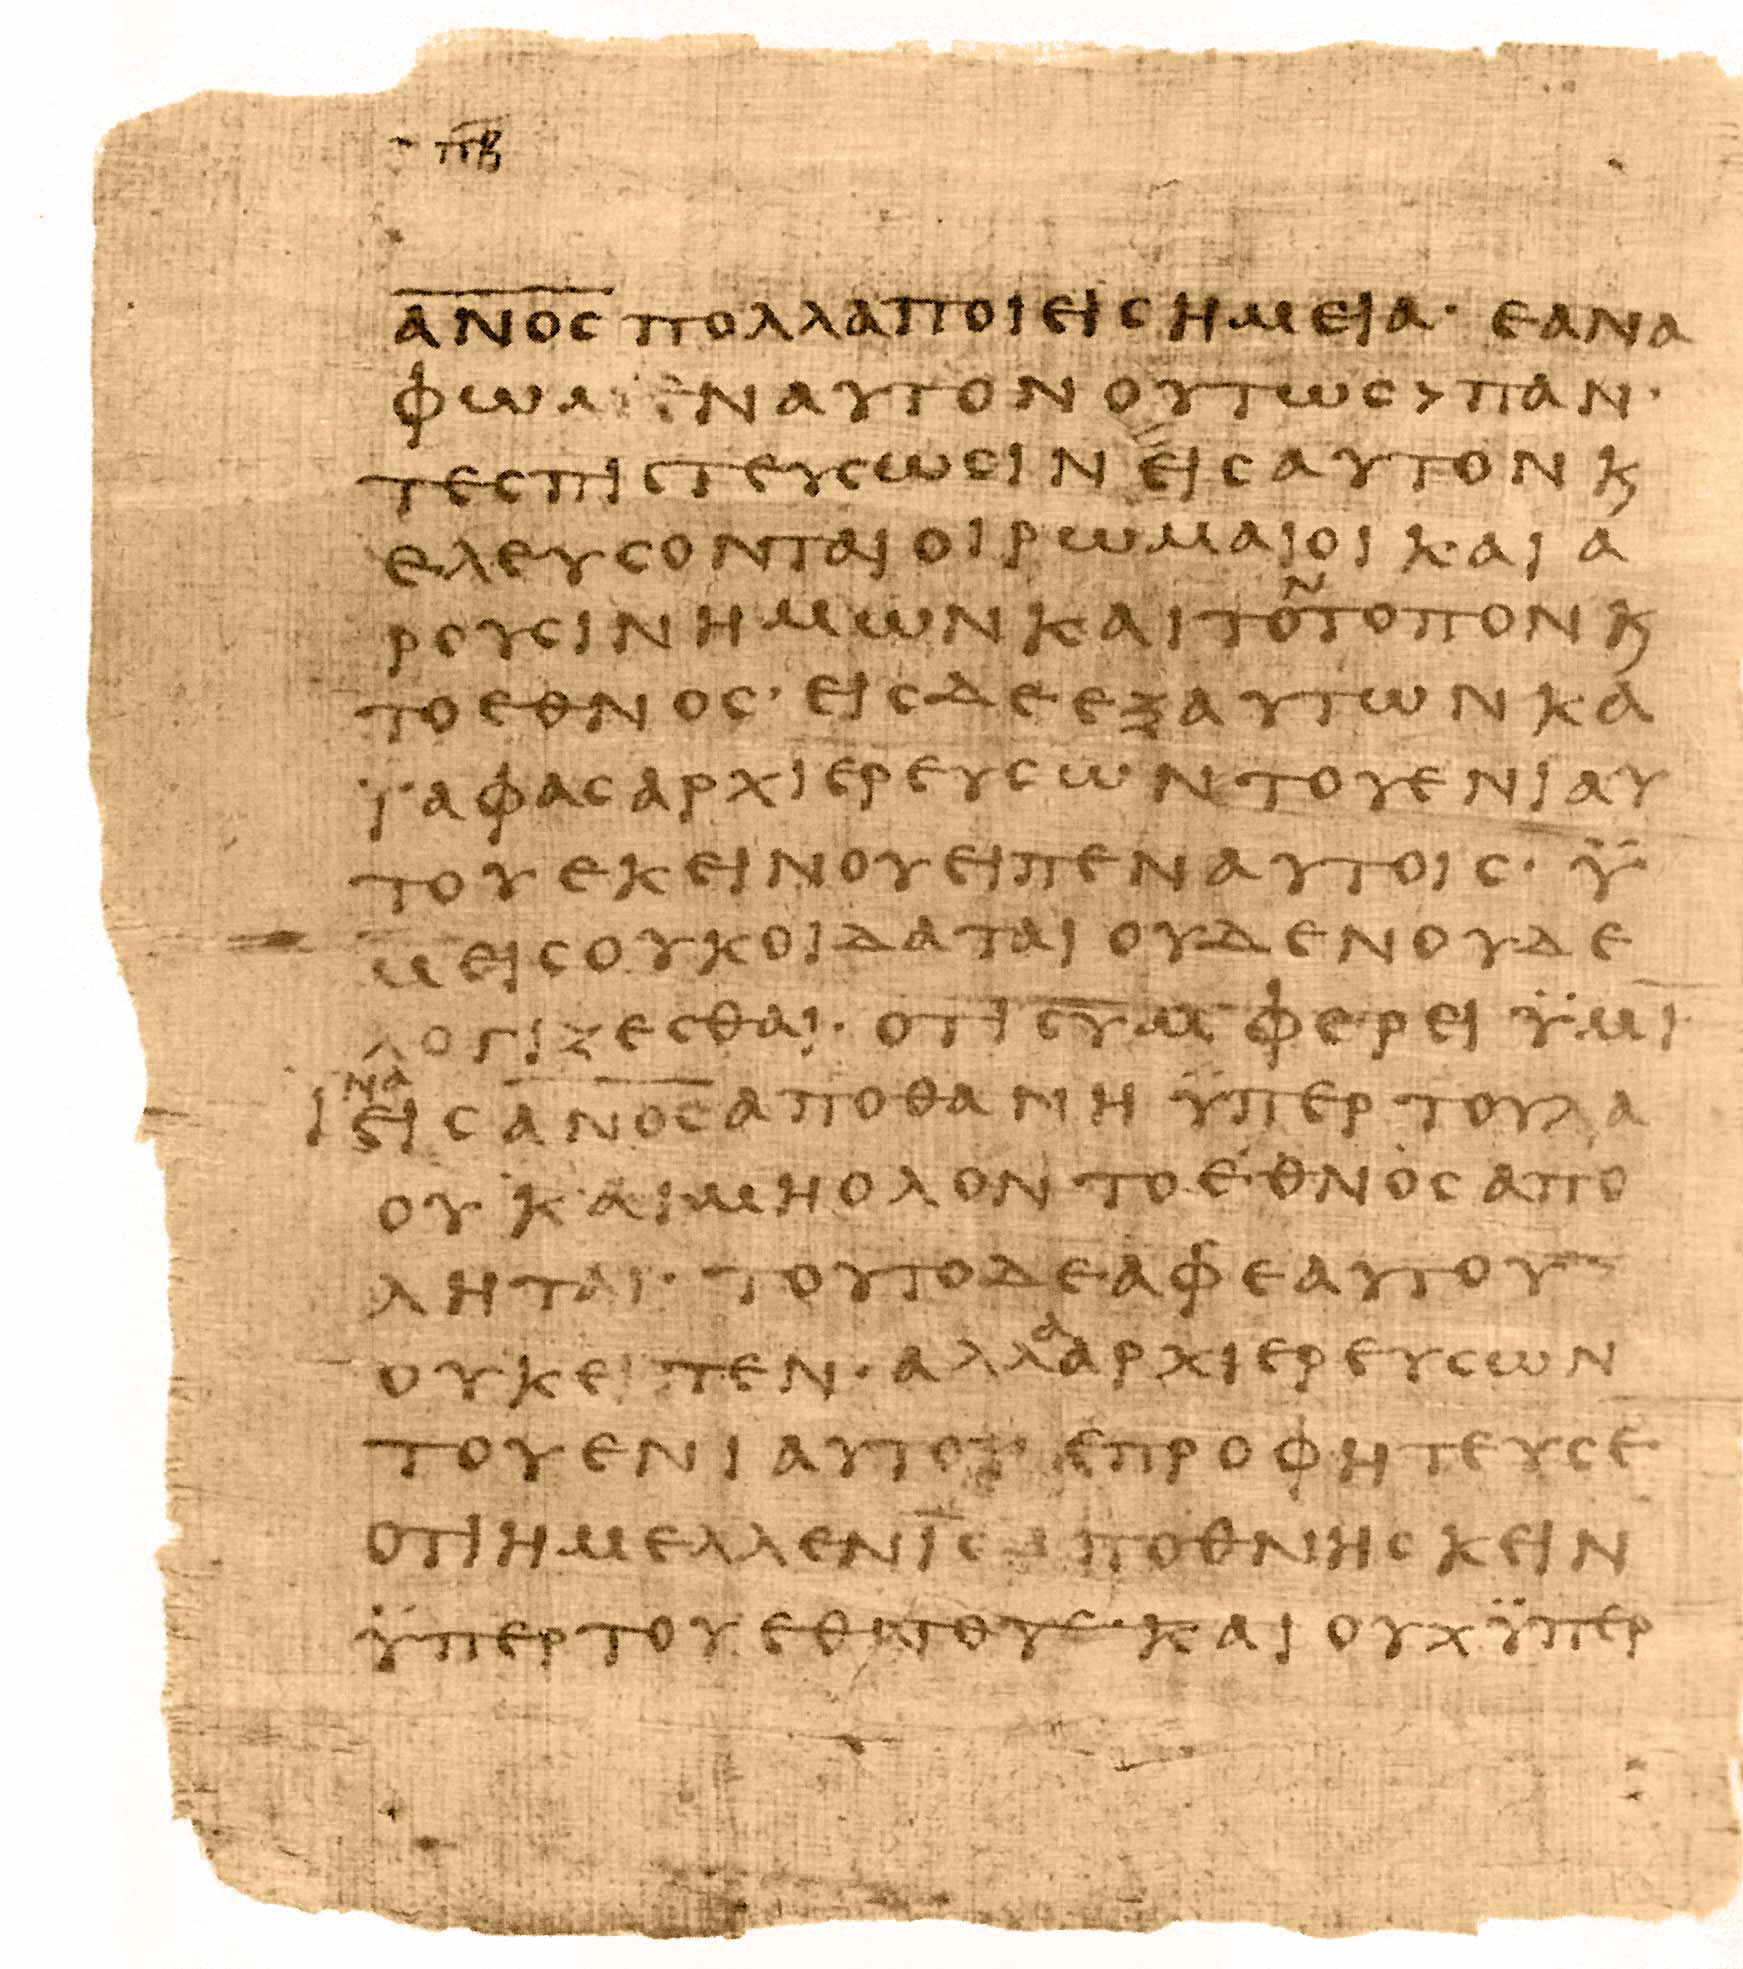 π̅β̅
α̅ν̅ο̅ς̅ πολλα ποιει σημεια· εαν α
φωμεν αυτον ουτως > παν·
τες πιστευσωσιν εις αυτον κ
ελευσονται οι ρωμαιοι και α
ρουσιν ημων και το ̔ν̓ τοπον κ
το εθνος· εις δε εξ αυτων κα
ϊαφας αρχιερευς ων του ενιαυ
του εκεινου ειπεν αυτοις· ϋ
μεις ουκ οιδαται ουδεν ουδε
λογιζεσθαι· οτι συμφερει ϋμι
ινα εις α̅ν̅ο̅ς̅ αποθανη ϋπερ του λα
ου και μη ολον το εθνος απο
ληται· τουτο δε αφ εαυτου
ουκ ειπεν· αλλα αρχιερευς ων
του ενιαυτου επροφητευσε
οτι ημελλεν ι̅ς̅ αποθνησκειν
ϋπερ του εθνους· και ουχ ϋπερ